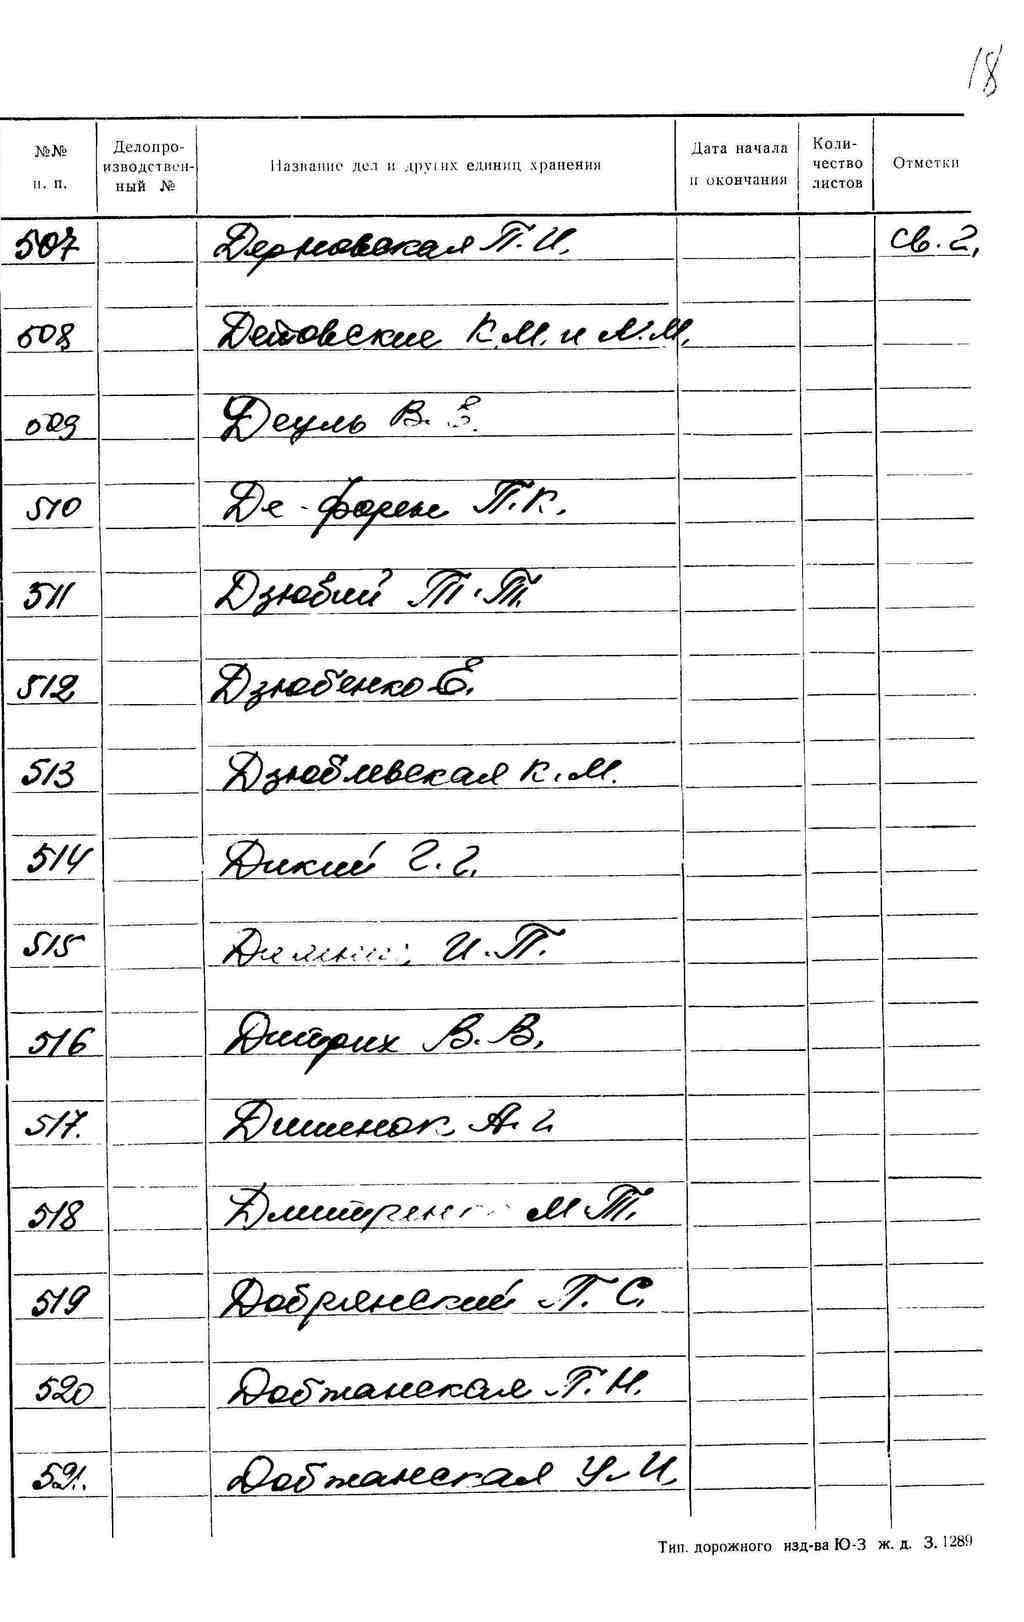 18
№№ п. п. Делопро-изводствен-ный № Название дел и других единиц хранения Дата начала и окончания Коли-чество листов Отметки
507 Дерновская П. И. св. 2,
508 Детовские К.М. и М.М.
509 Деуль В. Е.
510 Де-Форен П.К.
511 Дзюбий Т.Т.
512 Дзюбенко Е.
513 Дзюблевская К.М.
514 Дикий Г.Г.
515 И.П.
516 Дитрих В.В.
517. Дишенок А.Г
518 М.Т.
519 Добрянский П.С.
520 Добжанская Г.Н.
521. Добжанская У.И.
Тип. дорожного изд-ва Ю-З ж. д. З. 1289